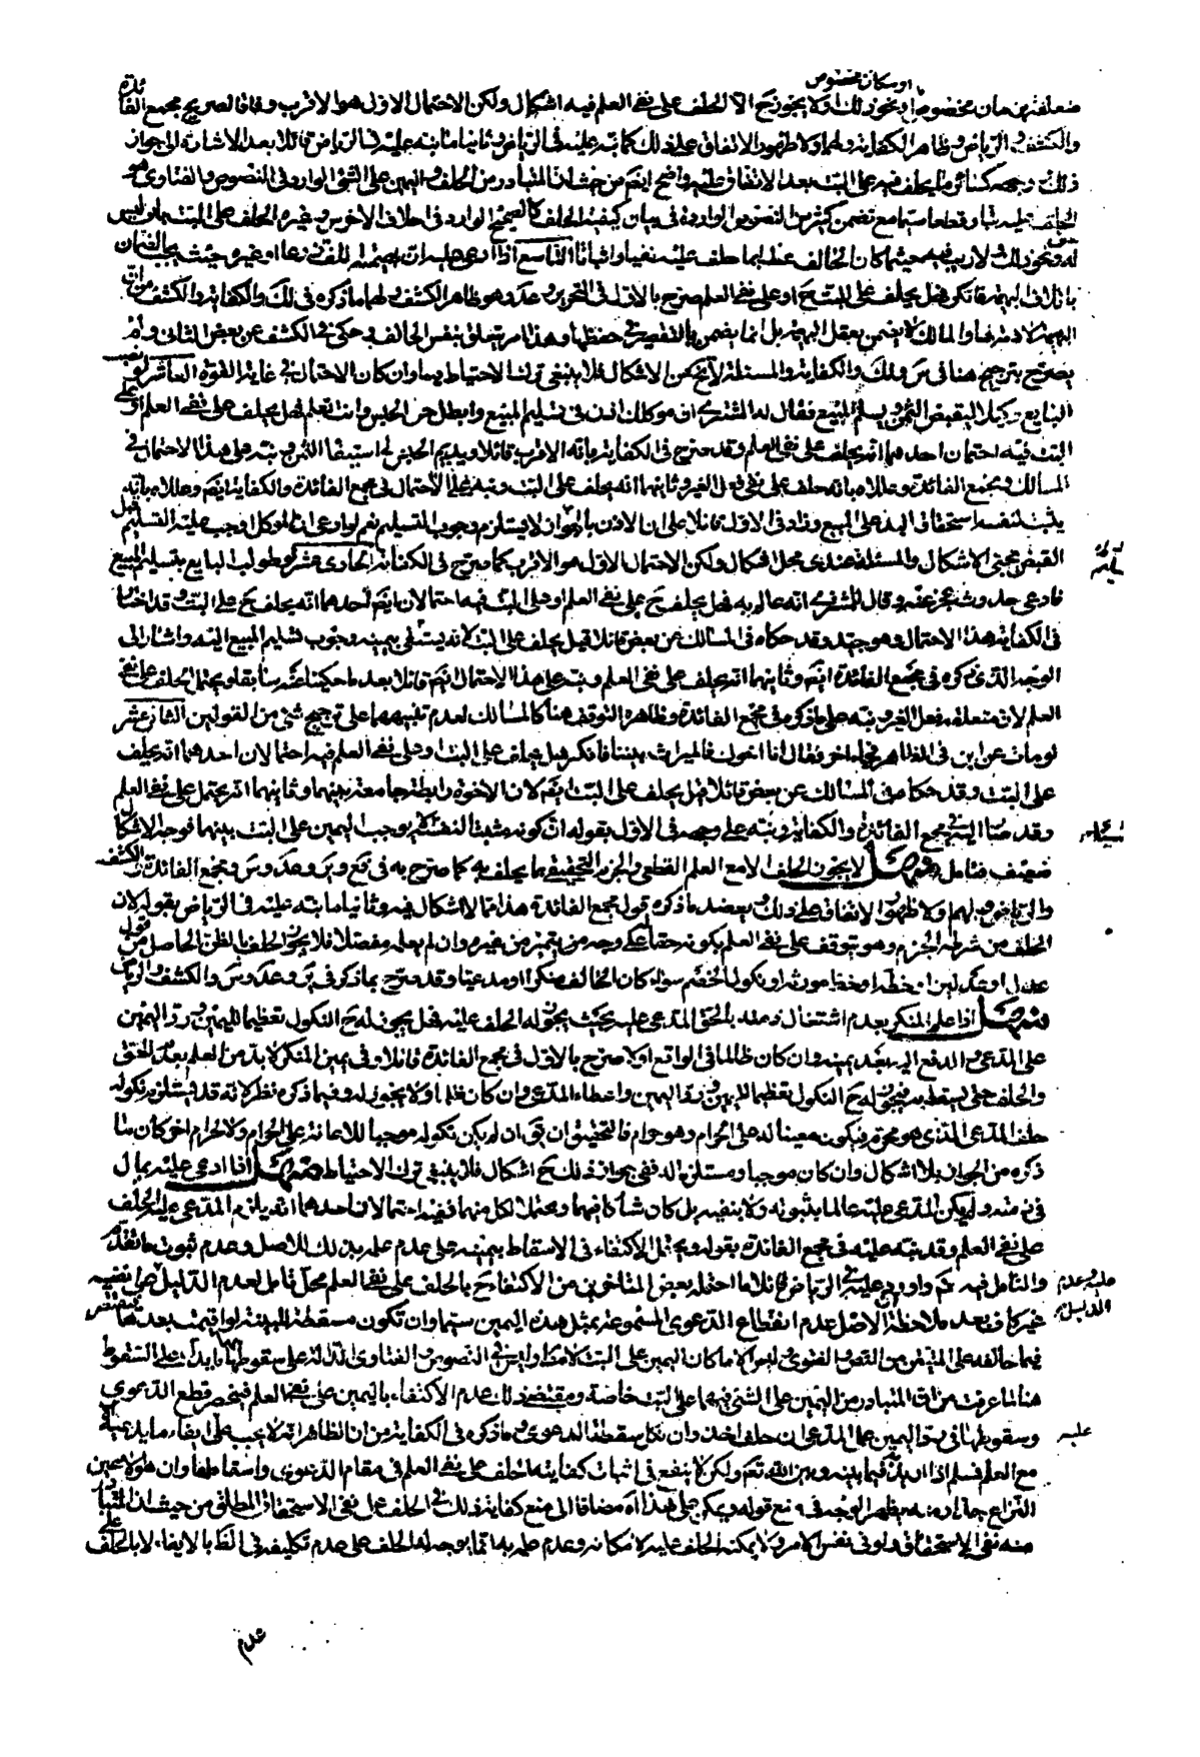 او مكان مخصوص
متعلقة بزمان مخصوص او نحو ذلك او لا يجوز ح الا الحلف على نفى العلم فيه اشكال ولكن الاحتمال الاول هو الاقرب وفاقا لصريح مجمع الفائدة
والكشف والرياض وظاهر الكفاية ولهم اولا ظهور الاتفاق على ذلك كما نبه عليه فى الرياض وثانيا ما نبه عليه فى الرياض قائلا بعد الاشارة الى جواز
ذلك وجهه كسائر ما يحلف فيه على البت بعد الاتفاق عليه واضح ايضا من حيث ان المتبادر من الحلف واليمين على الشئ الوارد فى النصوص والفتاوى هو
الحلف عليه بتا وقطعا سيما مع تضمن كثير من النصوص الواردة فى بيان كيفية الحلف كالصحيح الوارد فى احلاف الاخرس وغيره الحلف على البت بما وليس
له ونحو ذلك ولا ريب فيه حيثما كان الحالف عالما بما حلف عليه نفيا واثباتا التاسع اذا ادعى عليه ان بهيمته اتلفت زرعا او غيره حيث يجب الضمان
باتلاف البهيمة فانكر فهل يحلف على البت ح او على نفى العلم صرح بالاول فى التحرير وعد وهو ظاهر الكشف ولهما ما ذكره فى لك والكفاية والكشف من ان
البهيمة لا ذمة لها والمالك لا يضمن بفعل البهيمة بل انما يضمن بالتقصير فى حفظها وهذا امر يتعلق بنفس الحالف وحكى فى الكشف عن بعض الثانى ولم
يصرح بترجيح هنا فى س ولك والكفاية والمسئلة لا تخ عن الاشكال فلا ينبغى ترك الاحتياط فيها وان كان الاحتمال فى غاية القوة العاشر لو نصب
البايع وكيلا ليقبض الثمن ويسلم المبيع فقال له المشترى ان موكلك اذن فى تسليم المبيع وابطل حق الحبس وانت تعلم فهل يحلف على نفى العلم او على
البت فيه احتمالان احدهما انه يحلف على نفى العلم وقد صرح فى الكفاية بانه الاقرب قائلا ويديم الحبس الى استيفاء الثمن ونبه على هذا الاحتمال فى
المسالك ومجمع الفائدة وعللاه بانه حلف على نفى فعل الغير وثانيهما انه يحلف على البت ونبه على الاحتمال فى مجمع الفائدة والكفاية ايضا وعللاه بانه
يثبت لنفسه استحقاق اليد على المبيع وزاد فى الاول قائلا على ان الاذن بالجواز لا يستلزم وجوب التسليم نعم لو ادعى ان الموكل اوجب عليه التسليم قبل
القبض يجئ الاشكال والمسئلة عندى محل اشكال ولكن الاحتمال الاول هو الاقرب كما صرح فى الكفاية الحادى عشر لو طولب البايع بتسليم المبيع
فادعى حدوث عجز عنه وقال للمشترى انه عالم به فهل يحلف ح على نفى العلم او على البت فيه احتمالان ايضا احدهما انه يحلف ح على البت وقد اختار
فى الكفاية هذا الاحتمال وهو جيد وقد حكاه فى المسالك عن بعض قائلا قيل يحلف على البت لانه يستبقى بيمينه وجوب تسليم المبيع اليه واشار الى
الوجه الذى ذكره فى مجمع الفائدة ايضا وثانيهما انه يحلف على نفى العلم ونبه على هذا الاحتمال ايضا قائلا بعد ما حكينا عنه سابقا ويحتمل الحلف على نفى
العلم لان متعلقه فعل الغير ونبه على ما ذكره فى مجمع الفائدة وظاهره التوقف هنا كالمسالك لعدم تنبيههما على ترجيح شئ من القولين الثانى عشر
لو مات عن ابن فى الظاهر فجاء اخر فقال انا اخوك فالميراث بيننا فانكر فهل يحلف على البت او على نفى العلم فيه احتمالان احدهما انه يحلف
على البت وقد حكاه فى المسالك عن بعض قائلا قيل يحلف على البت ايضا لان الاخوة رابطة جامعة بينهما وثانيهما انه يحتمل على نفى العلم
وقد صار اليه فى مجمع الفائدة والكفاية ونبه على وجهه فى الاول بقوله ان كونه مثبتا لنفسه لا يوجب اليمين على البت بينهما فوجه الاشكال
ضعيف فتامل منهل لا يجوز الحلف الا مع العلم القطعى والجزم التحقيقى بما يحلف به كما صرح به فى يع ور وعد وس ومجمع الفائدة والكشف
والرياض ولهم اولا ظهور الاتفاق على ذلك ويعضد ما ذكره قوله مجمع الفائدة هذا مما لا اشكال فيه وثانيا ما نبه عليه فى الرياض بقوله لان
الحلف من شرطه الجزم وهو يتوقف على نفى العلم بكونه حقا على وجه من يتميز من غيره وان لم يعلمه مفصلا فلا يجوز الحلف بالظن الحاصل من قول
عدل او عدلين او خطه او خط مورثه او نكول الخصم سواء كان الحالف منكرا او مدعيا وقد صرح بما ذكر فى ير وعد وس والكشف والرياض
منهل اذا علم المنكر بعدم اشتغال ذمته بالحق المدعى عليه بحيث يجوز له الحلف عليه فهل يجوز له ح النكول تعظيما لليمين ويرد اليمين
على المدعى والدفع اليه بعد يمينه وان كان ظالما فى الواقع او لا صرح بالاول فى مجمع الفائدة قائلا وفى يمين المنكر لا بد من العلم بعدم الحق
والحلف حتى يسقط به فيجوز له ح النكول تعظيما لليمين ورد اليمين واعطاء المدعى وان كان ظلما ولا يجوز له وفيما ذكره نظر لانه قد يستلزم نكوله
حلف المدعى الذى هو محرم فيكون معينا له على الحرام وهو حرام فالتحقيق ان يق ان لم يكن نكوله موجبا للاعانة على الحرام ولا لحرام اخر كان ما
ذكره من الجواز بلا اشكال وان كان موجبا ومستلزما لذلك ففى جواز ذلك ح اشكال فلا ينبغى ترك الاحتياط منهل اذا ادعى عليه بمال
فى ذمته ولم يكن المدعى عليه عالما بثبوته ولا بنفيه بل كان شاكا فيهما ومحتملا لكل منهما ففيه احتمالان احدهما انه يلزم المدعى عليه الحلف
على نفى العلم وقد نبه عليه فى مجمع الفائدة بقوله ويحتمل الاكتفاء فى الاسقاط بيمينه على عدم علمه بذلك للاصل وعدم ثبوت ما تقدم
والتامل فيه ثم واورد عليه فى الرياض قائلا ما احتمله بعض المتاخرين من الاكتفاء ح بالحلف على نفى العلم محل تامل لعدم الدليل عليه نفيه
عليه وعدم الدليل
غير كاف بعد ملاحظة الاصل عدم انقطاع الدعوى المسموعة بمثل هذه اليمين سيما وان تكون مسقطة للبينة لو اقيمت بعدها مقتصرا
فيما خالفه على المتيقن من النص والفتوى وليس الا ما كان اليمين على البت لا مطلقا وليس فى النصوص والفتاوى الدلالة على سقوطها بما يدل على السقوط
هنا لما عرفت من ان المتبادر من اليمين على الشئ فيهما على البت خاصة ومقتضى ذلك عدم الاكتفاء باليمين على نفى العلم فينحصر قطع الدعوى
وسقوطها فى رد اليمين على المدعى ان حلف اخذ وان نكل سقطت الدعوى وما ذكره فى الكفاية من ان الظاهر انه لا يجب على ايفاء ما يدعيه الا
عليه
مع العلم فمسلم اذا اريد فيما بينه وبين الله تعم ولكن لا ينفع فى اثبات كفاية الحلف على نفى العلم فى مقام الدعوى واسقاطها وان هو الا عين
النزاع جدا ومنه يظهر الوجه فى منع قوله ويمكن على هذا اه مضافا الى منع كفاية ذلك فى الحلف على نفى الاستحقاق المطلق من حيث ان المتبادر
منه نفى الاستحقاق ولو فى نفس الامر ولا يمكنه الحلف عليه لامكانه وعدم علمه به انما يوجب له الحلف على عدم تكليفه فى الظ بالايفاء لا بالحلف على
عدم